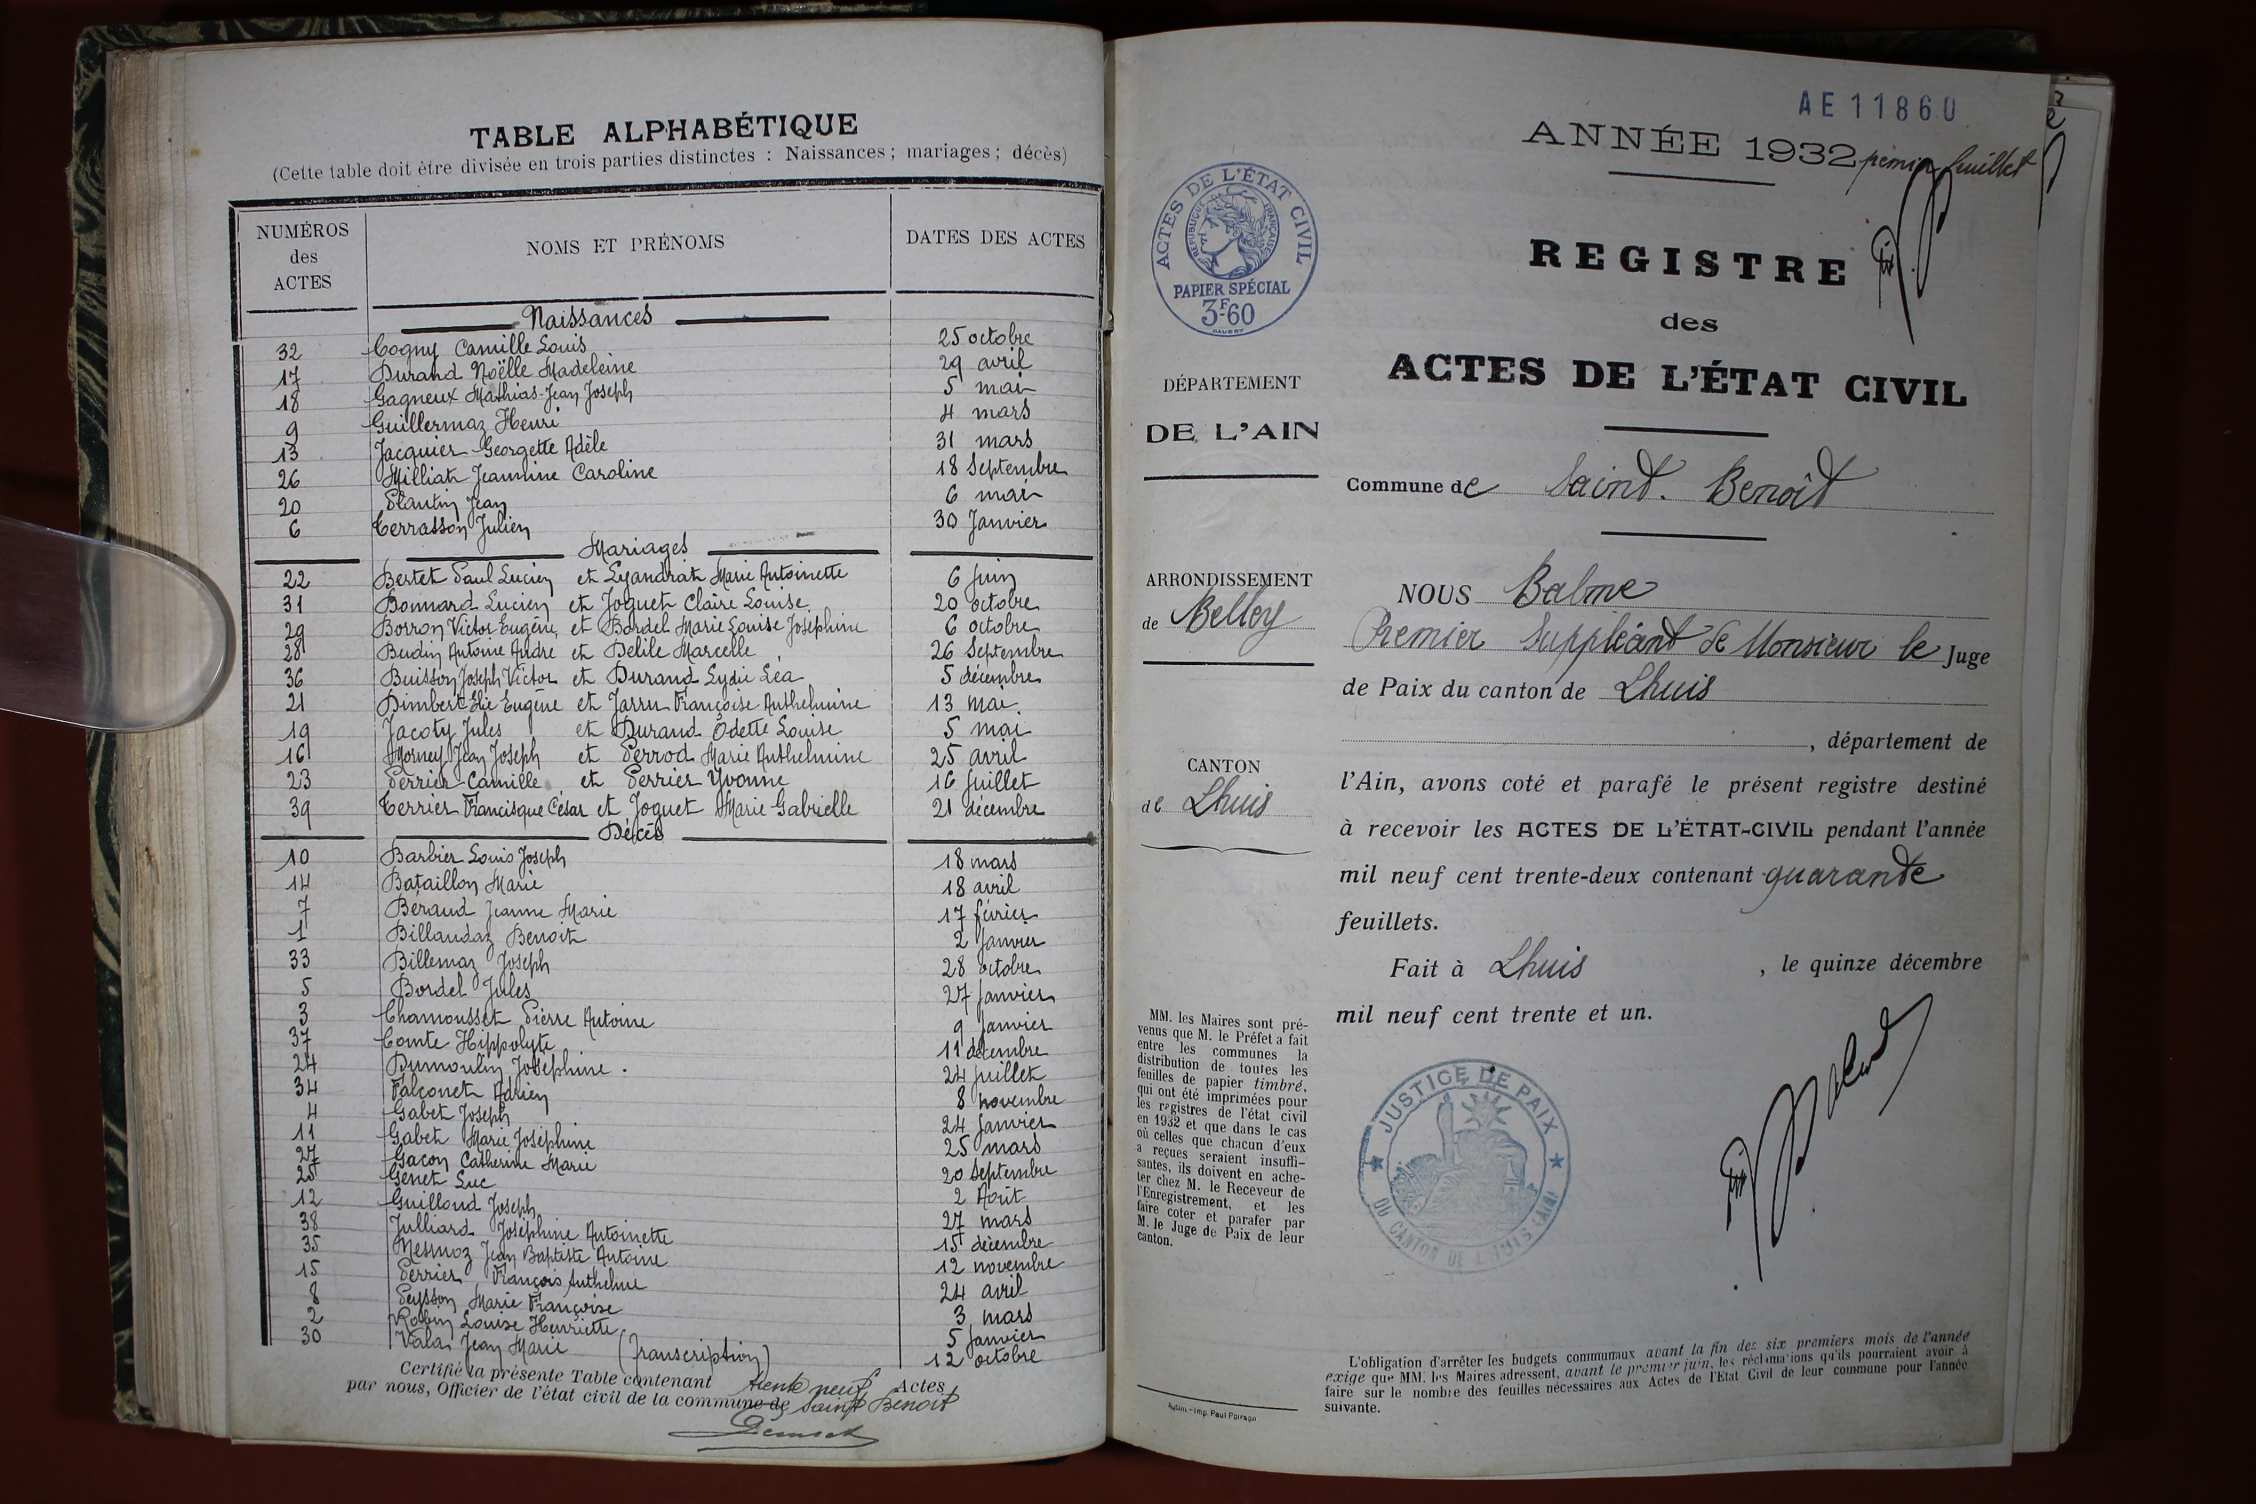 TABLE ALPHABÉTIQUE
(Cette table doit être divisée en trois parties distinctes : Naissances ; mariages ; décès)
NUMÉROS des ACTES NOMS ET PRÉNOMS DATES DES ACTES
Naissances
32 Cogny Camille Louis 25 octobre
17 Durand Noëlle Madeleine 29 avril
18 Gagneux Mathias-Jean Joseph 5 mai
9 Guillermaz Henri 4 mars
13 Jacquier Georgette Adèle 31 mars
26 Milliat Jeannine Caroline 18 Septembre
20 Plantin Jean 6 mai
6 Terrasson Julien 30 Janvier
Mariages
22 Bertet Paul Lucien et Lyandrat Marie Antoinette 6 juin
31 Bonnard Lucien et Joguet Claire Louise 20 octobre
29 Borron Victor Eugène et Bordel Marie Louise Joséphine 6 octobre
28 Budin Antoine André et Delile Marcelle 26 Septembre
36 Buisson Joseph Victor et Durand Lydie Léa 5 décembre
21 Dimbert Elie Eugène et Jarru Françoise Anthelmine 13 mai
19 Jacoty Jules et Durand Odette Louise 5 mai
16 Morney Jean Joseph et Perrod Marie Anthelmine 25 avril
23 Perrier Camille et Perrier Yvonne 16 Juillet
39 Terrier Francisque César et Joguet Marie Gabrielle 21 décembre
Décès
10 Barbier Louis Joseph 18 mars
14 Bataillon Marie 18 avril
7 Béraud Jeanne Marie 17 février
1 Billaudaz Benoit 2 Janvier
33 Billemaz Joseph 28 octobre
5 Bordel Jules 27 Janvier
3 Chamousset Pierre Antoine 9 Janvier
37 Comte Hippolyte 11 décembre
24 Dumoulin Joséphine . 24 juillet
34 Falconet Adrien 8 novembre
4 Gabet Joseph 24 Janvier
11 Gabet Marie Joséphine 25 mars
27 Gacon Catherine Marie 20 Septembre
25 Genet Luc 2 Août
12 Guilloud Joseph 27 mars
38 Julliard Joséphine Antoinette 15 décembre
35 Mesmoz Jean Baptiste Antoine 12 novembre
15 Perrier François Anthelme 24 avril
8 Peysson Marie Françoise 3 mars
2 Robin Louise Henriette 5 Janvier
30 Vala Jean Marie (Transcription) 12 octobre
Certifié la présente Table contenant trente neuf Actes
par nous, Officier de l'état civil de la commune de Saint Benoit
AE 11860
ANNÉE 1932 premier feuillet
ACTES DE L'ÉTAT CIVIL
RÉPUBLIQUE FRANÇAISE
PAPIER SPÉCIAL
3F-60
REGISTRE
des
ACTES DE L'ÉTAT CIVIL
DÉPARTEMENT
DE L'AIN
Commune de Saint-Benoît
ARRONDISSEMENT
de Belley
CANTON
de Lhuis
NOUS Balme
Premier Suppléant de Monsieur le Juge
de Paix du canton de Lhuis
, département de
l'Ain, avons coté et parafé le présent registre destiné
à recevoir les ACTES DE L'ÉTAT-CIVIL pendant l'année
mil neuf cent trente-deux contenant quarante
feuillets.
Fait à Lhuis , le quinze décembre
mil neuf cent trente et un.
MM. les Maires sont pré-
venus que M. le Préfet a fait
entre les communes la
distribution de toutes les
feuilles de papier timbré,
qui ont été imprimées pour
les registres de l'état civil
en 1932 et que dans le cas
où celles que chacun d'eux
a reçues seraient insuffi-
santes, ils doivent en ache-
ter chez M. le Receveur de
l'Enregistrement, et les
faire coter et parafer par
M. le Juge de Paix de leur
canton.
JUSTICE DE PAIX
DU CANTON DE LHUIS (AIN)
L'obligation d'arrêter les budgets communaux avant la fin des six premiers mois de l'année
exige que MM. les Maires adressent, avant le premier juin, les réclamations qu'ils pourraient avoir à
faire sur le nombre des feuilles nécessaires aux Actes de l'Etat Civil de leur commune pour l'année
suivante.